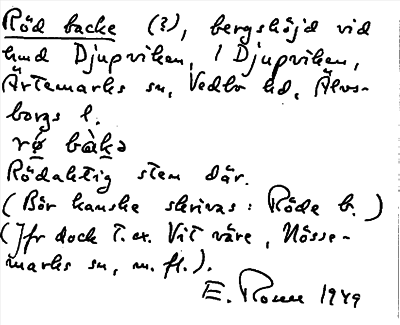 Röd backe (?), bergshöjd vid
hmd Djupviken, 1 Djupviken,
Ärtemarks sn, Vedbo hd, Älvs-
borgs l.
rø̄ bàkə
Rödaktig sten där.
(Bör kanske skrivas: Röde b.)
(Jfr dock t.ex. Vit väre, Nösse-
marks sn, m. fl.).
E. Rosen 1949